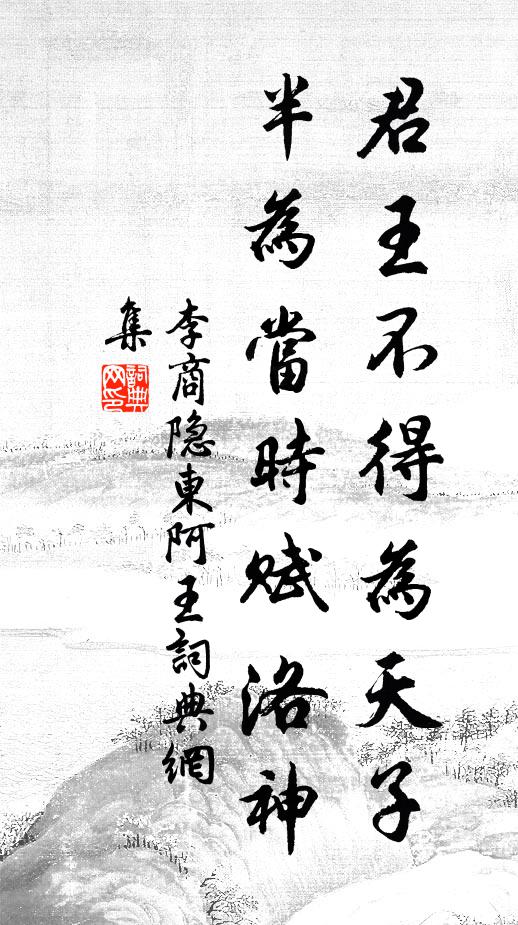 君王不得為天子
半為當時賦洛神
李商隐東阿王詞典網
集
詞典
网印